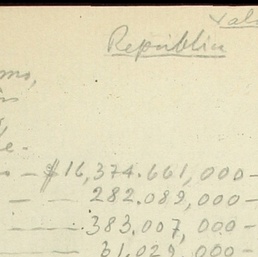 Valo
Republica
mo,
as
,
e.-
o - $16,374.661,000-
- - 282.089,000-
383.007,000-
31.029.000-